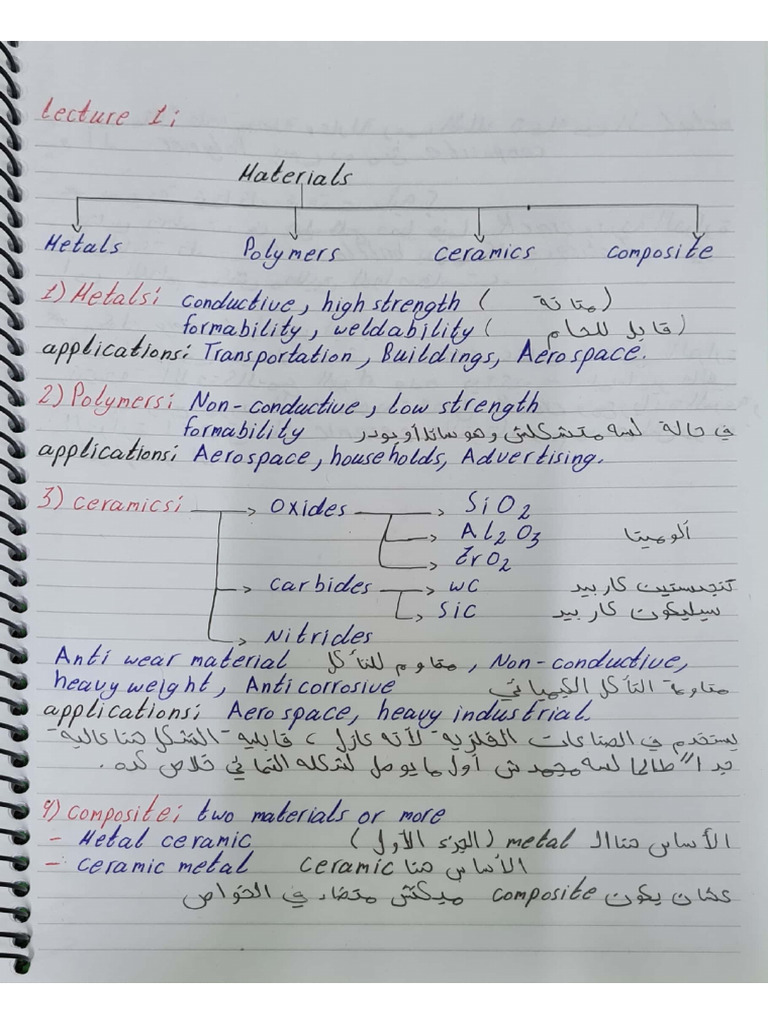 Lecture 1:
Materials
Metals Polymers Ceramics Composite
1) Metals: conductive, high strength (متانة)
formability, weldability (قابل للحام)
applications: Transportation, Buildings, Aerospace.
2) Polymers: Non-conductive, low strength
formability في حالة لسه متشكلش وهو سائل أو بودر
applications: Aerospace, households, Advertising.
3) ceramics: → Oxides → SiO2
→ Al2O3 ألومينا
→ ZrO2
→ Carbides → WC تنجستين كاربيد
→ SiC سيليكون كاربيد
→ Nitrides
Anti wear material مقاوم للتأكل, Non-conductive,
heavy weight, Anti corrosive مقاومة التأكل الكيميائي
applications: Aerospace, heavy industrial.
يستخدم في الصناعات الفلزية لأنه عازل، قابلية التشكل هنا عالية
جداً طالما لسه متجمدش أول ما يوصل لشكله النهائي خلاص كده.
4) Composite: two materials or more
– Metal ceramic (الجزء الأول) metal الأساس هنا الـ
– Ceramic metal الأساس هنا ceramic
عشان يكون composite ميكنش متضاد في الخواص